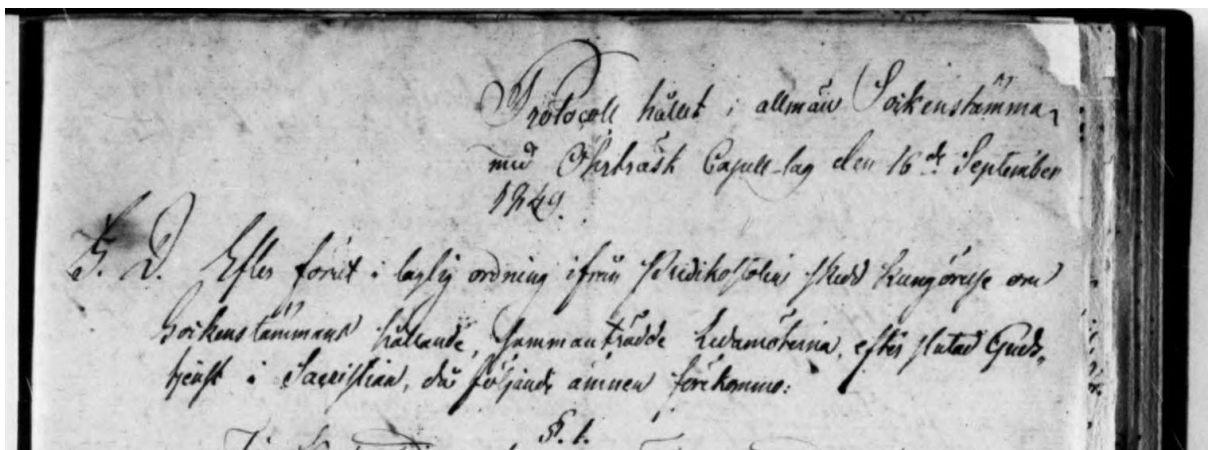 Protocoll hållet i allmän Sockenstämma,
med Örträsk Capell-lag den 16de September
1849.
S. D. Efter förut i laglig ordning ifrån Predikostolen skedd kungörelse om
Sockenstämmans hållande, sammanträdde Ledamöterna, efter slutad Guds,
tjenst i Sacristian, då följande ämnen förekommo:
§. 1.